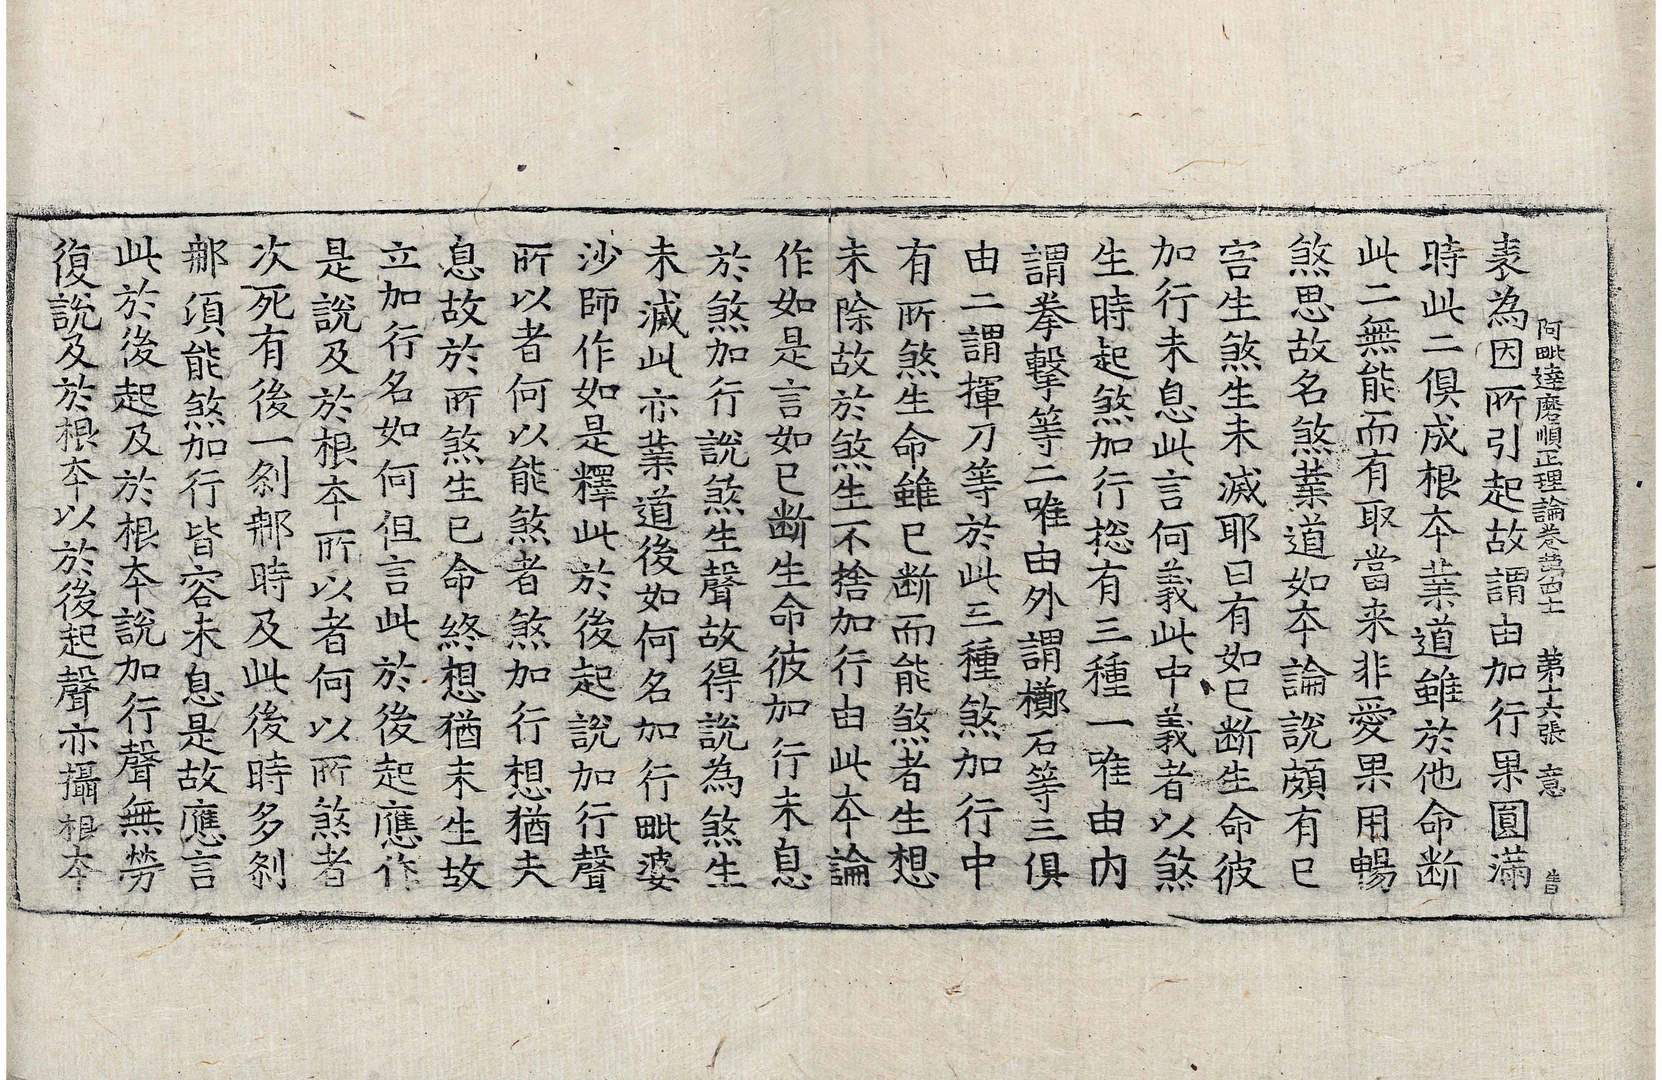 阿毗達磨順正理論卷苐四十二 苐十六張 意
表為因所引起故謂由加行果圓滿
時此二俱成根夲業道雖於他命断
此二無能而有取當来非愛果用暢
煞思故名煞業道如夲論說頗有已
害生煞生未滅耶曰有如已断生命彼
加行未息此言何義此中義者以煞
生時起煞加行捴有三種一唯由内
謂拳擊等二唯由外謂擲石等三俱
由二謂揮刀等於此三種煞加行中
有所煞生命雖已断而能煞者生想
未除故於煞生不捨加行由此夲論
作如是言如已断生命彼加行未息
於煞加行說煞生聲故得說為煞生
未滅此亦業道後如何名加行毗婆
沙師作如是釋此於後起說加行聲
所以者何以能煞者煞加行想猶未
息故於所煞生已命終想猶未生故
立加行名如何但言此於後起應作
是說及於根夲所以者何以所煞者
次死有後一剎那時及此後時多剎
那須能煞加行皆容未息是故應言
此於後起及於根夲說加行聲無勞
復說及於根夲以於後起聲亦攝根夲